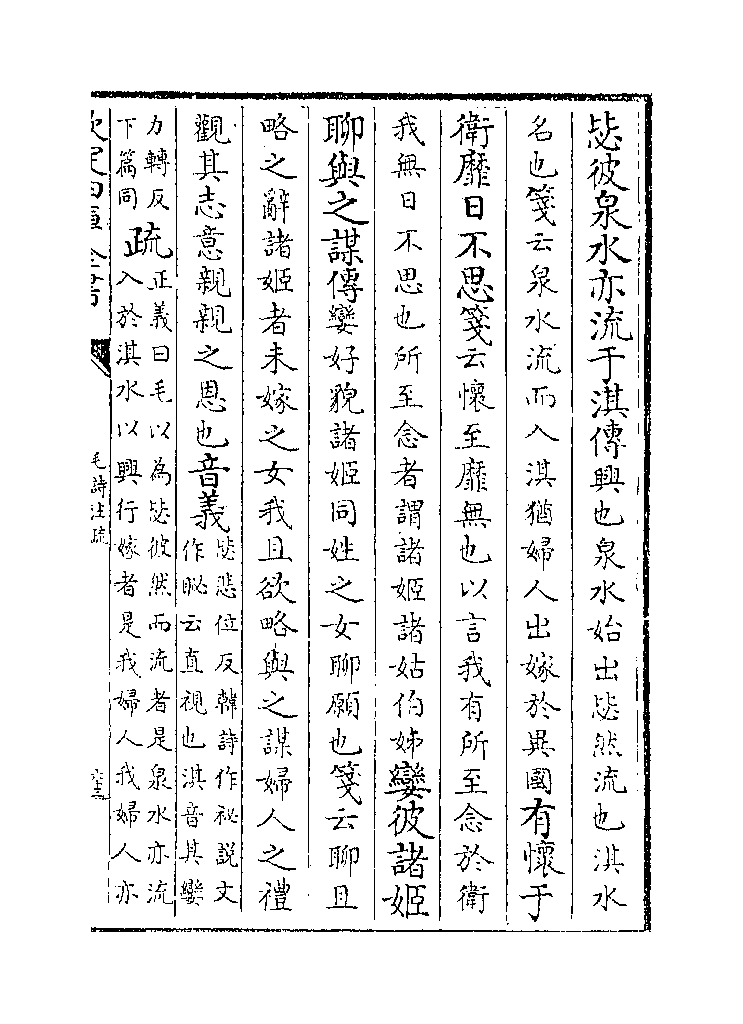 毖彼泉水亦流于淇傳興也泉水始出毖然流也淇水
名也箋云泉水流而入淇猶婦人出嫁於異國有懷于
衛靡日不思箋云懷至靡無也以言我有所至念於衛
我無日不思也所至念者謂諸姬諸姑伯姊孌彼諸姬
聊與之謀傳孌好貌諸姬同姓之女聊願也箋云聊且
略之辭諸姬者未嫁之女我且欲略與之謀婦人之禮
觀其志意親親之恩也音義毖悲位反韓詩作祕說文
作䀣云直視也淇音其孌
力轉反
下篇同疏正義曰毛以為毖彼然而流者是泉水亦流
入於淇水以興行嫁者是我婦人我婦人亦
欽定四庫全書
毛詩注疏